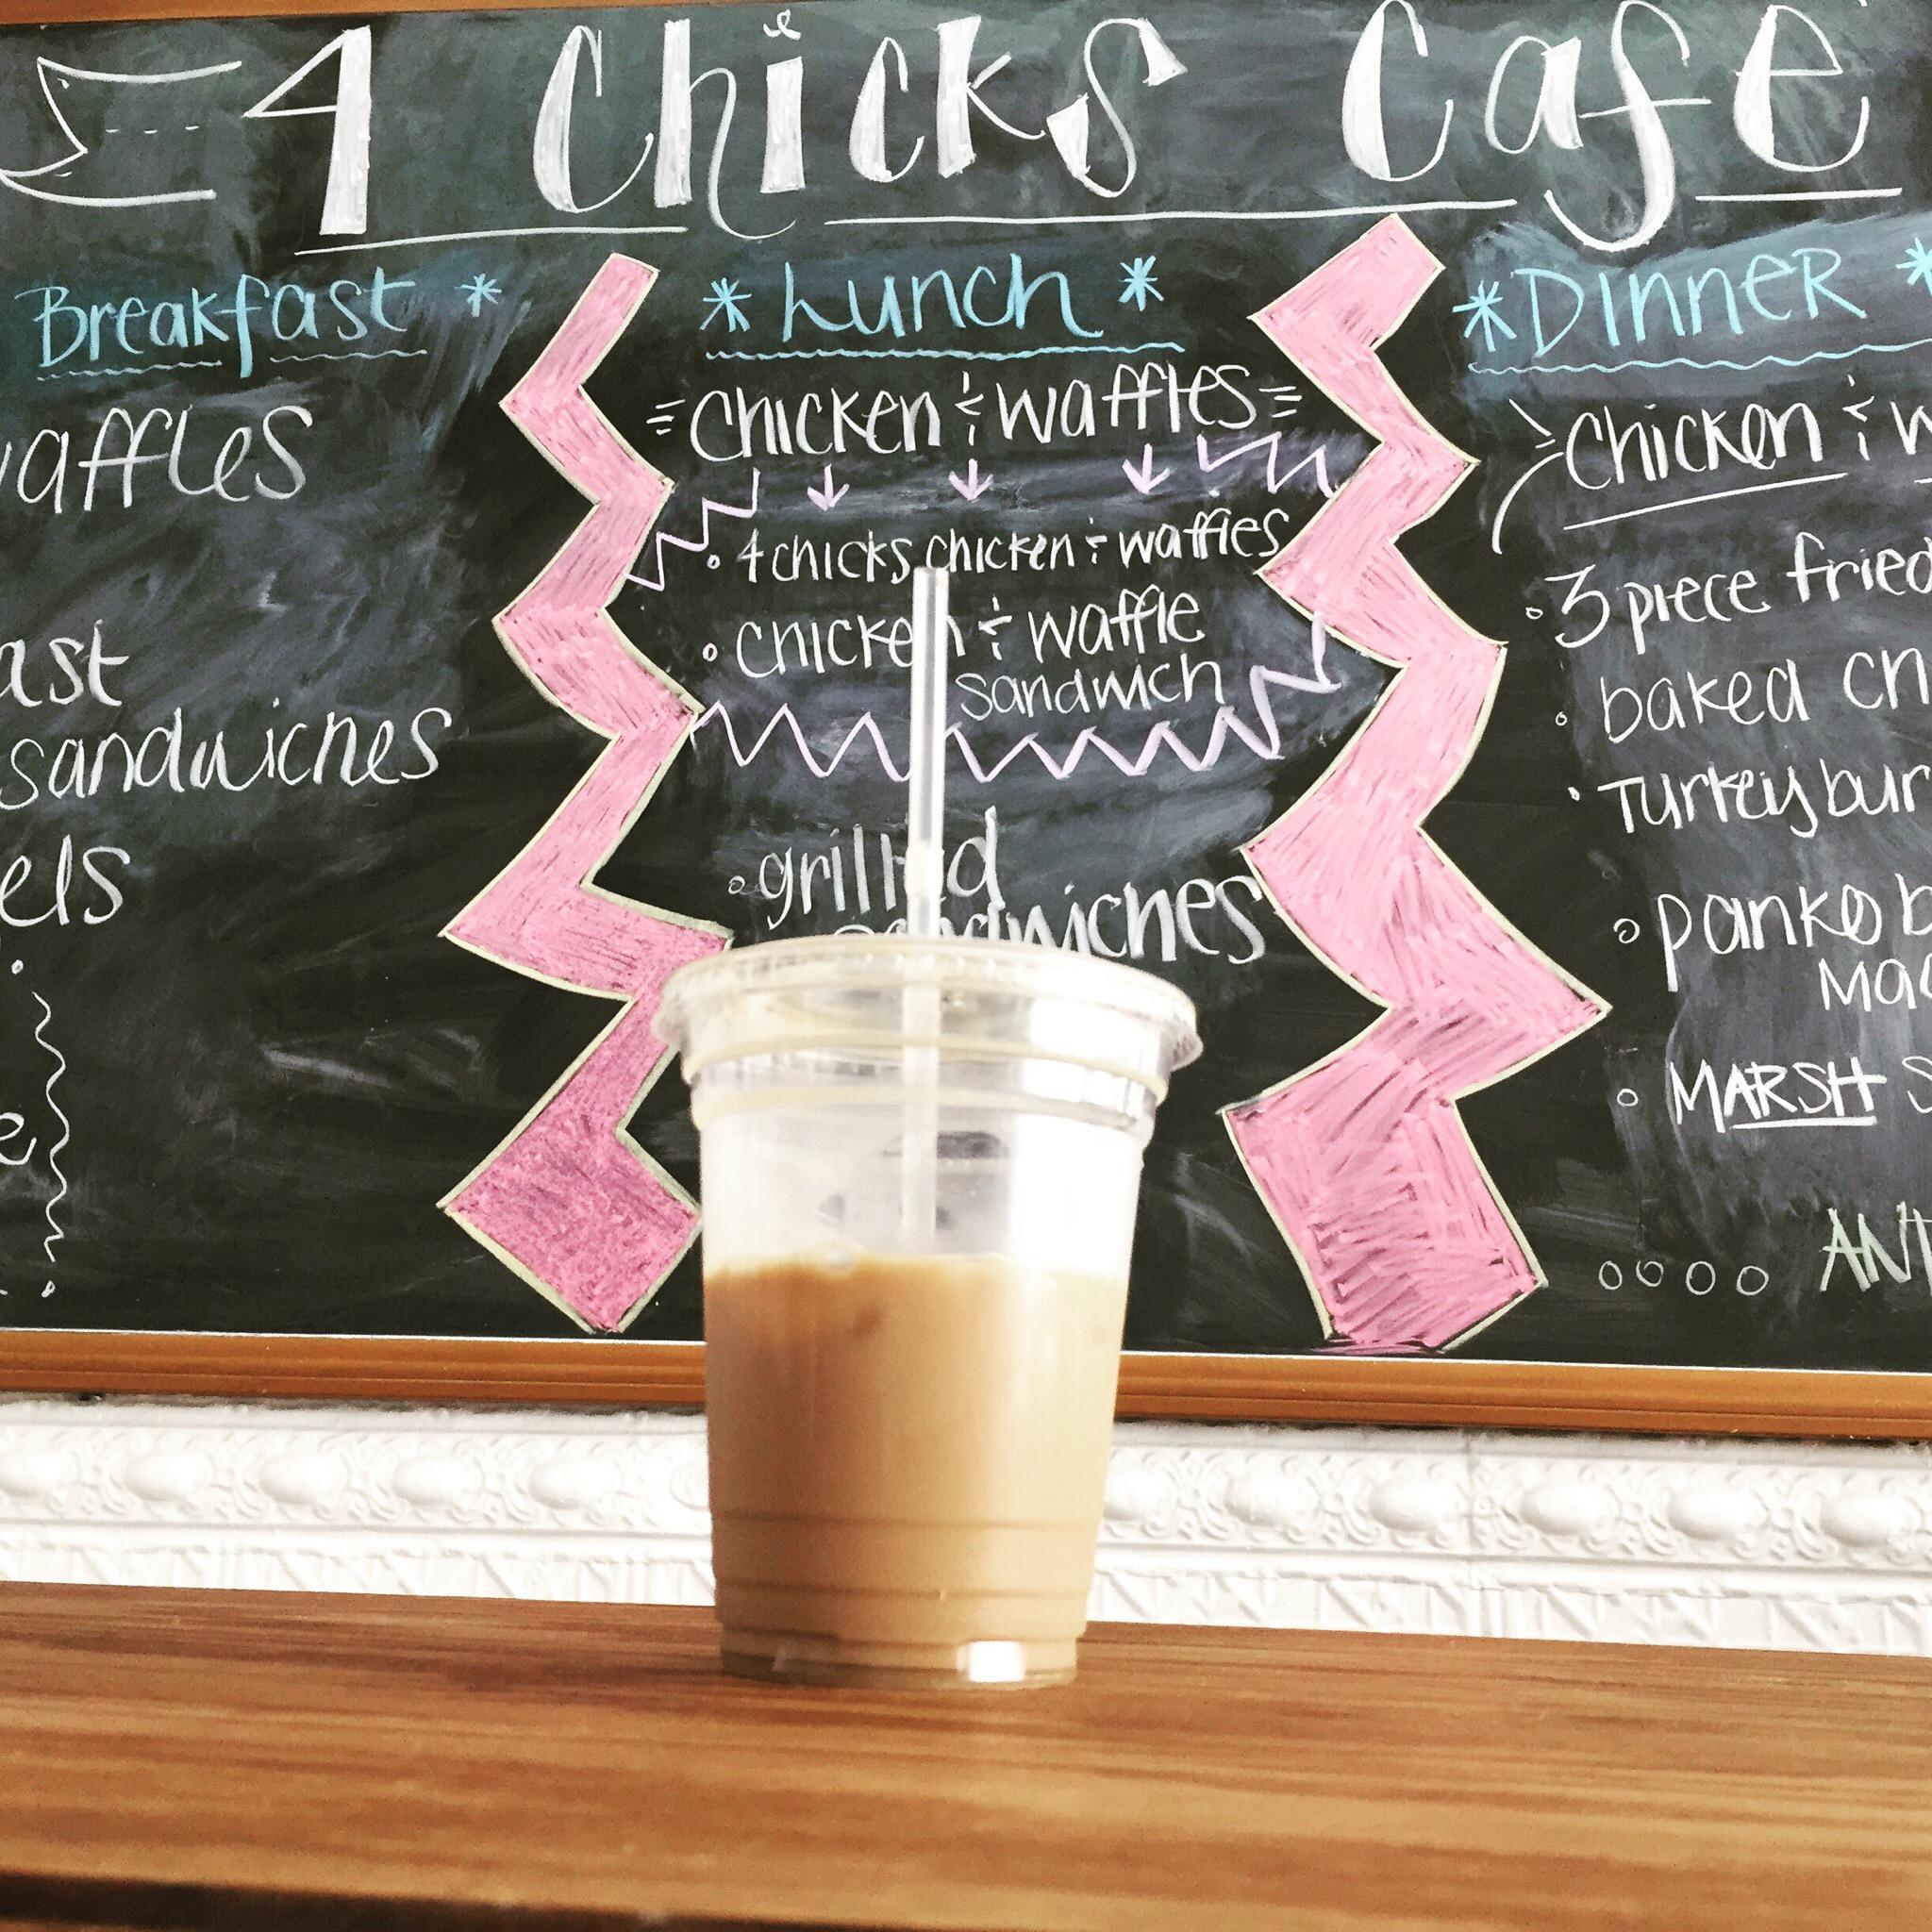 4 Chicks Cafe
Breakfast *
waffles
sandwiches
* Lunch *
Chicken & waffles
• 4 chicks chicken & waffles
• chicken & waffle
sandwich
• grilled
sandwiches
* DINNER *
Chicken &
• 3 piece fried
• baked
• Turkey
• panko
• MARSH